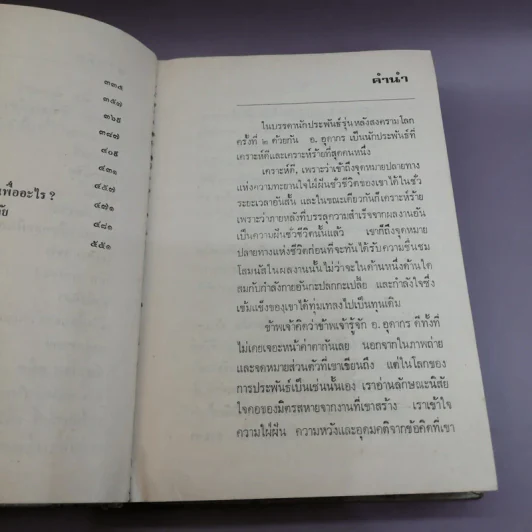 ๓๓๕
๓๕๗
๓๖๕
๓๘๗
๔๐๕
๔๓๑
๔๕๗
เพื่ออะไร ? ๔๗๑
๔๘๑
๕๕๑
คำนำ
ในบรรดานักประพันธ์รุ่นหลังสงครามโลก
ครั้งที่ ๒ ด้วยกัน อ. อุดากร เป็นนักประพันธ์ที่
เคราะห์ดีและเคราะห์ร้ายที่สุดคนหนึ่ง
เคราะห์ดี, เพราะว่าเข้าถึงจุดหมายปลายทาง
แห่งความทะยานใจใฝ่ฝันชั่วชีวิตของเขาได้ในชั่ว
ระยะเวลาอันสั้น และในขณะเดียวกันก็เคราะห์ร้าย
เพราะว่าภายหลังที่บรรลุความสำเร็จจากผลงานอัน
เป็นความฝันชั่วชีวิตนั้นแล้ว เขาก็ถึงจุดหมาย
ปลายทางแห่งชีวิตก่อนที่จะทันได้รับความชื่นชม
โสมนัสในผลงานนั้นไม่ว่าจะในด้านหนึ่งด้านใด
สมกับกำลังกายอันกะปลกกะเปลี้ย และกำลังใจซึ่ง
เข้มแข็งของเขาได้ทุ่มเทลงไปเป็นทุนเดิม
ข้าพเจ้าคิดว่าข้าพเจ้ารู้จัก อ. อุดากร ดีทั้งที่
ไม่เคยเจอะหน้าค่าตากันเลย นอกจากในภาพถ่าย
และจดหมายส่วนตัวที่เขาเขียนถึง แต่ในโลกของ
การประพันธ์เป็นเช่นนั้นเอง เราอ่านลักษณะนิสัย
ใจคอของมิตรสหายจากงานที่เขาสร้าง เราเข้าใจ
ความใฝ่ฝัน ความหวังและอุดมคติจากข้อคิดที่เขา